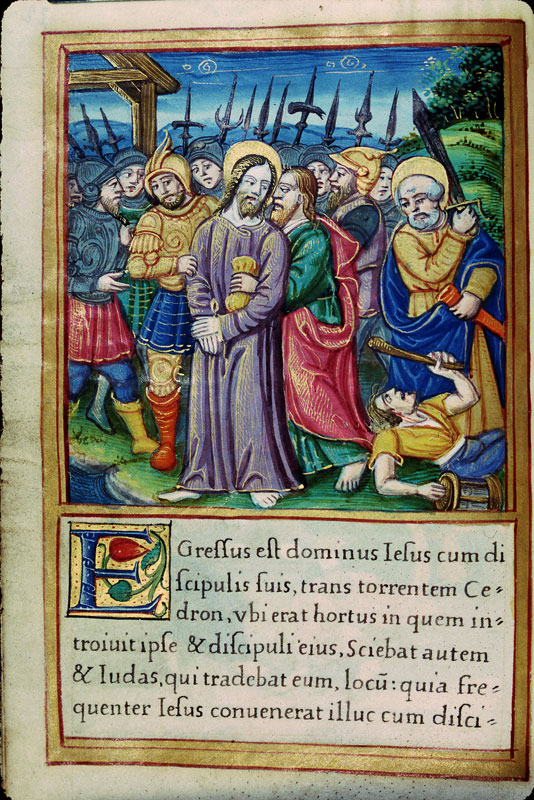 EGressus est dominus Iesus cum di
scipulis suis, trans torrentem Ce⸗
dron, vbi erat hortus in quem in⸗
troiuit ipse & discipuli eius, Sciebat autem
& Iudas, qui tradebat eum, locū: quia fre⸗
quenter Iesus conuenerat illuc cum disci⸗